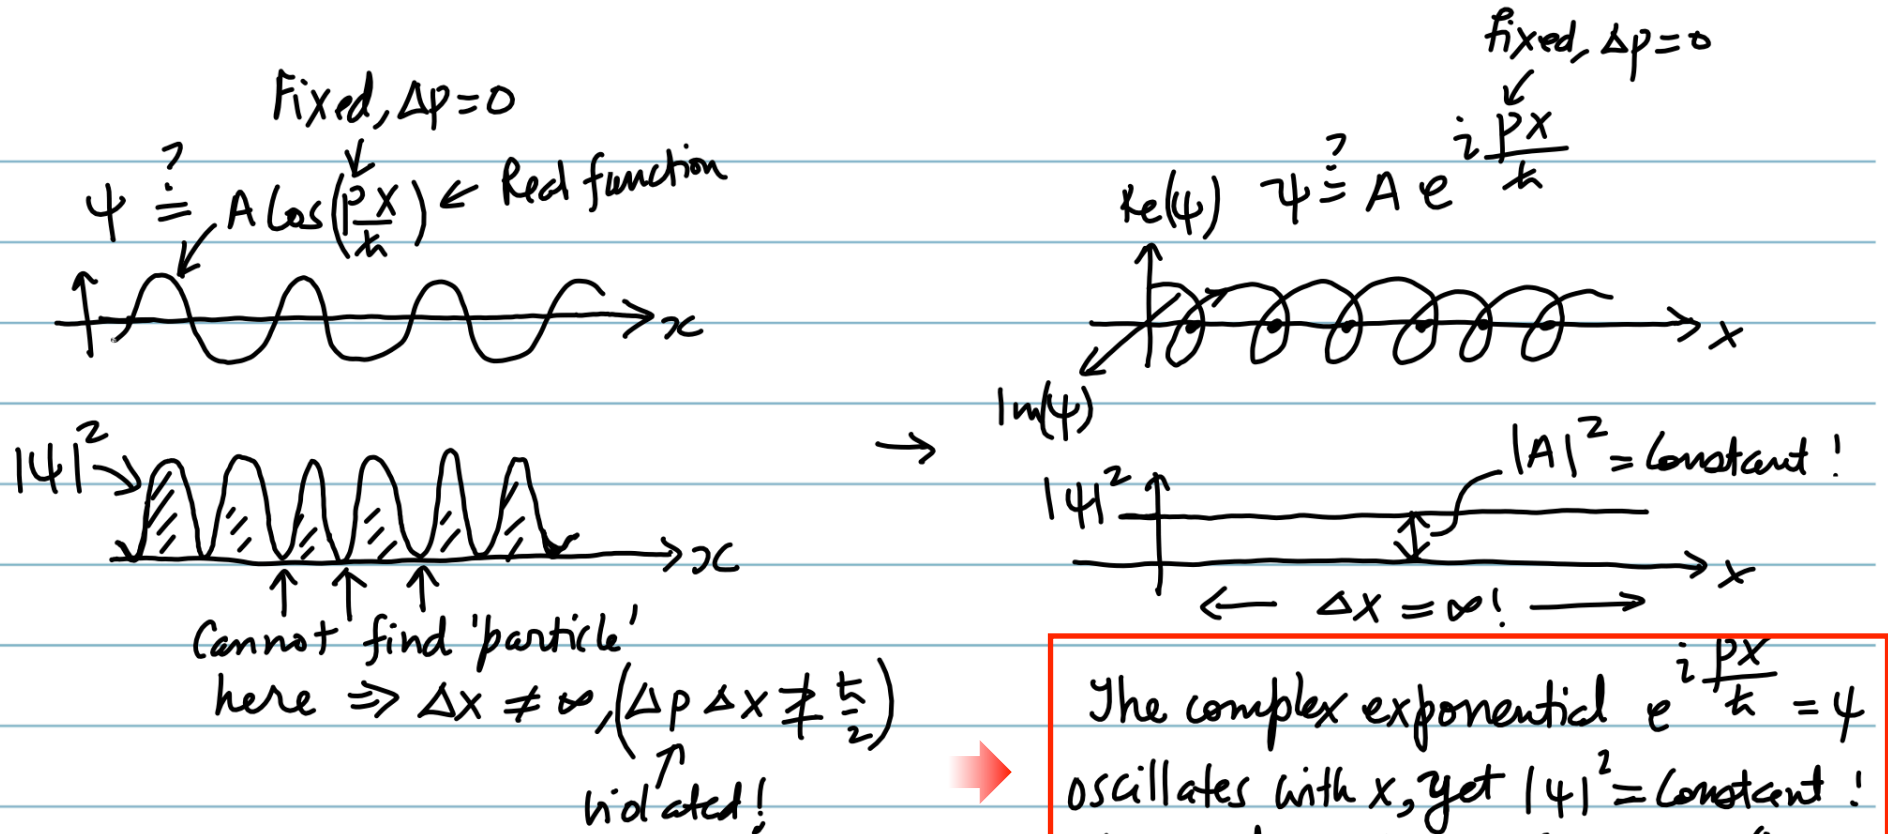 Fixed, Δp=0
ψ ≟ A Cos(px/ħ) ← Real function
x
|ψ|²
x
Cannot find 'particle'
here ⇒ Δx ≠ ∞, (Δp Δx ≱ ħ/2)
violated!
→
fixed, Δp=0
Re(ψ) ψ ≟ A e^{i px/ħ}
x
Im(ψ)
|A|² = Constant !
|ψ|²
x
← Δx = ∞! →
The complex exponential e^{i px/ħ} = ψ
oscillates with x, yet |ψ|² = Constant !